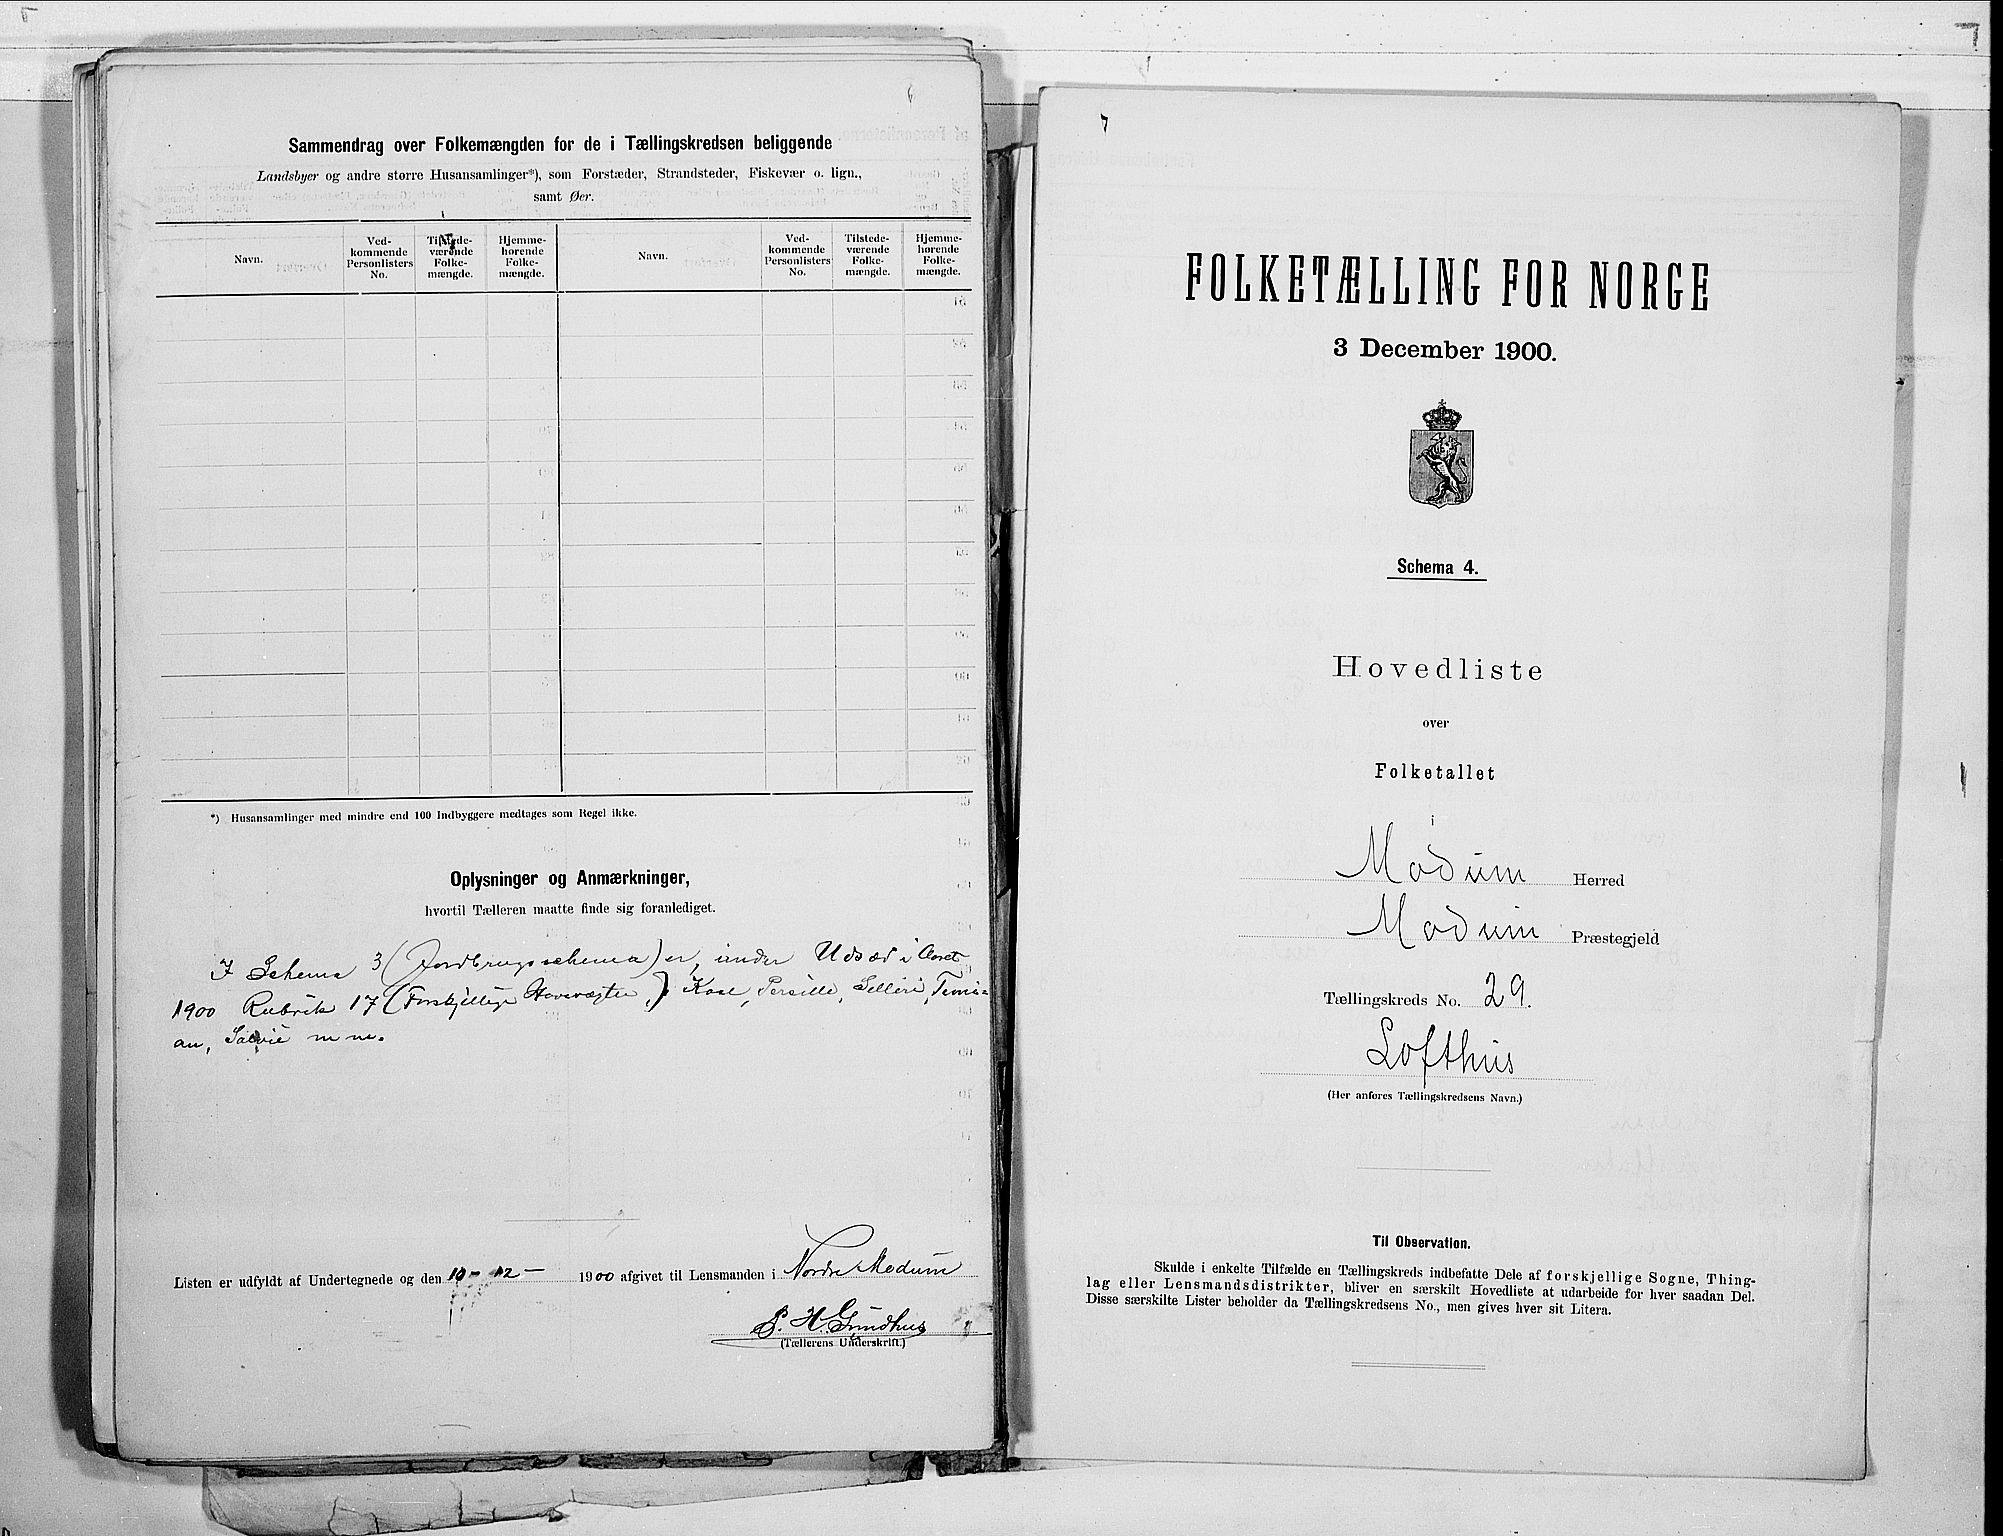 Sammendrag over Folkemængden for de i Tællingskredsen beliggende
Landsbyer og andre større Husansamlinger*), som Forstæder, Strandsteder, Fiskevær o. lign.,
samt Øer.
Navn.
Ved-
kommende
Personlisters
No.
Tilstede-
værende
Folke-
mængde.
Hjemme-
hørende
Folke-
mængde.
Navn.
Ved-
kommende
Personlisters
No.
Tilstede-
værende
Folke-
mængde.
Hjemme-
hørende
Folke-
mængde.
*) Husansamlinger med mindre end 100 Indbyggere medtages som Regel ikke.
Oplysninger og Anmærkninger,
hvortil Tælleren maatte finde sig foranlediget.
I Schema 3 (Jordbrugsschema) er, under Udsæd i Aaret
1900 Rubrik 17 (Forskjellige Havevægter,) Kaal, Persille, Selleri, Timi=
an, Salvie m m.
Listen er udfyldt af Undertegnede og den 10 - 12 - 1900 afgivet til Lensmanden i Nordre Modum
H. Gundhus
(Tællerens Underskrift.)
7
FOLKETÆLLING FOR NORGE
3 December 1900.
Schema 4.
Hovedliste
over
Folketallet
i
Modum Herred
Modum Præstegjeld
Tællingskreds No. 29.
Lofthus
(Her anføres Tællingskredsens Navn.)
Til Observation.
Skulde i enkelte Tilfælde en Tællingskreds indbefatte Dele af forskjellige Sogne, Thing-
lag eller Lensmandsdistrikter, bliver en særskilt Hovedliste at udarbeide for hver saadan Del.
Disse særskilte Lister beholder da Tællingskredsens No., men gives hver sit Litera.